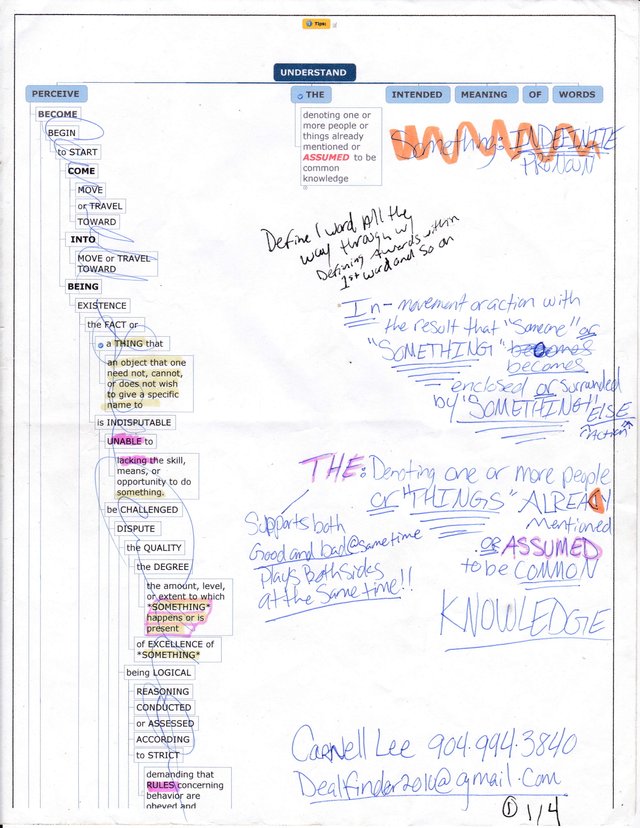 Tips:
UNDERSTAND
PERCEIVE THE INTENDED MEANING OF WORDS
BECOME
BEGIN
to START
COME
MOVE
or TRAVEL
TOWARD
INTO
MOVE or TRAVEL
TOWARD
BEING
EXISTENCE
the FACT or
a THING that
an object that one
need not, cannot,
or does not wish
to give a specific
name to
is INDISPUTABLE
UNABLE to
lacking the skill,
means, or
opportunity to do
something.
be CHALLENGED
DISPUTE
the QUALITY
the DEGREE
the amount, level,
or extent to which
*SOMETHING*
happens or is
present
of EXCELLENCE of
*SOMETHING*
being LOGICAL
REASONING
CONDUCTED
or ASSESSED
ACCORDING
to STRICT
demanding that
RULES concerning
behavior are
obeyed and
denoting one or
more people or
things already
mentioned or
ASSUMED to be
common
knowledge
Something: INDEFINITE
PRONOUN
Define 1 word All the
way through w/
Defining Awards within
1st word and so on
In- movement or action with
the result that "Someone" or
"SOMETHING" becomes
becomes
enclosed or surrounded
by "SOMETHING" ELSE
"Action"
THE: Denoting one or more people
or "THINGS" ALREADY
Mentioned
or ASSUMED
to be COMMON
KNOWLEDGE
Supports both
Good and bad @ same time
Plays Both sides
at the Same time!!
Carnell Lee 904.994.3840
Dealfinder2010@gmail.com
1 1/4